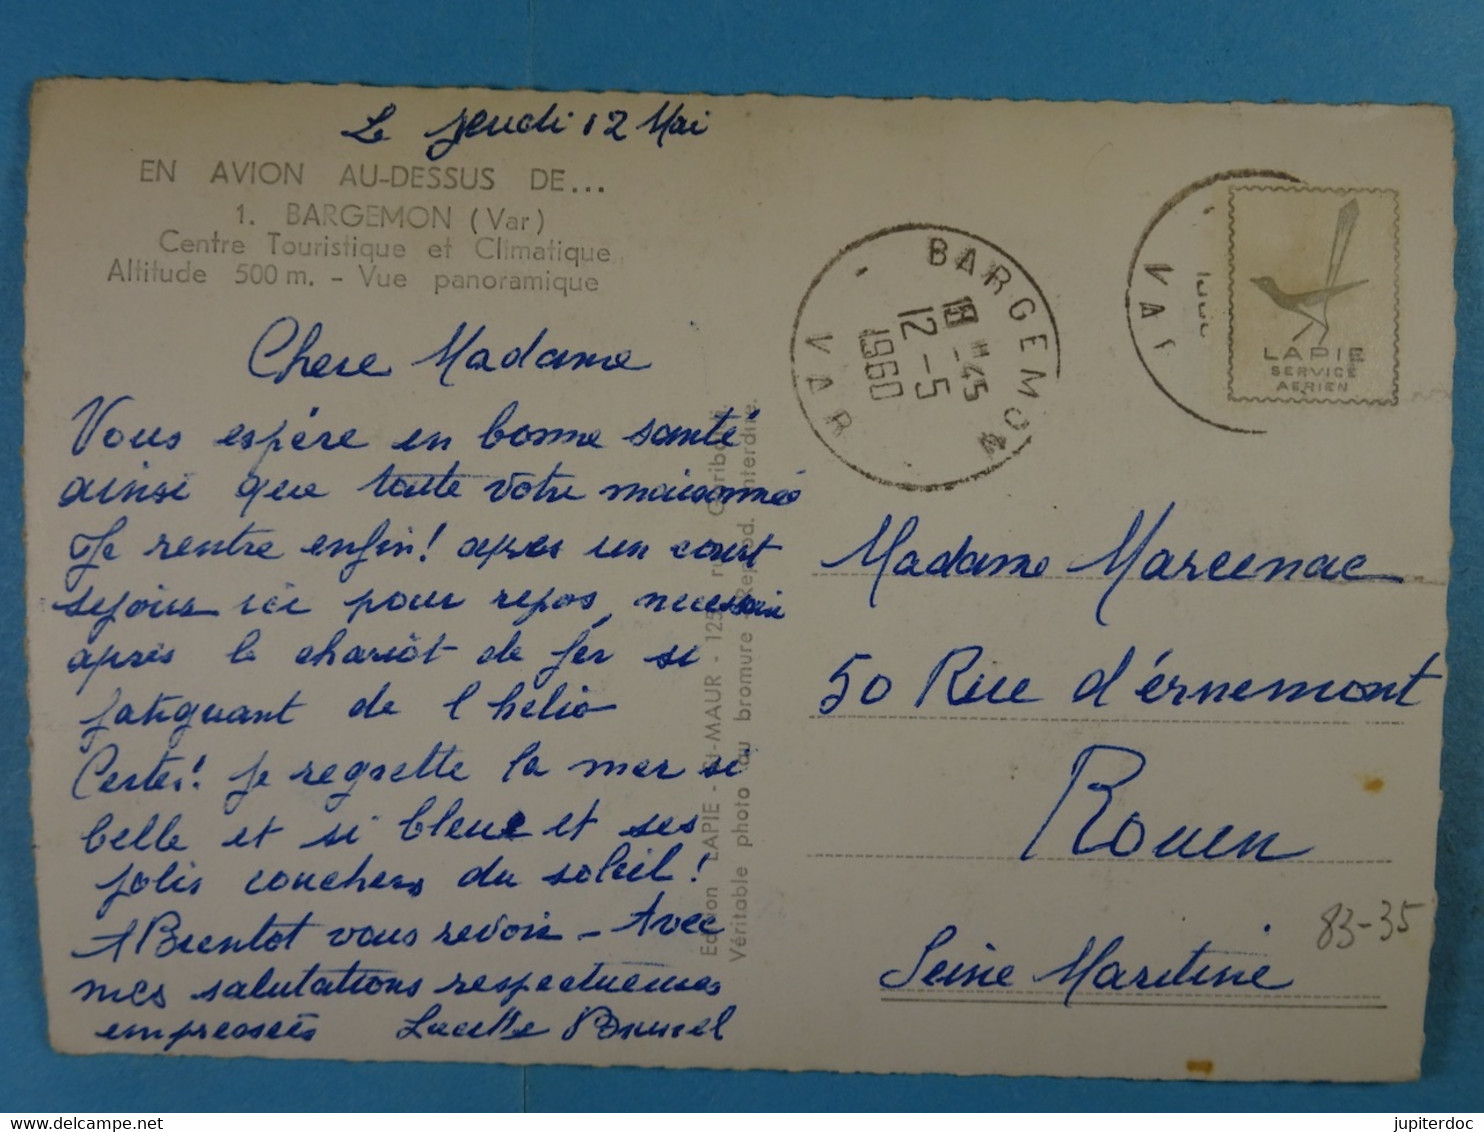 Le jeudi 12 Mai
EN AVION AU-DESSUS DE...
1. BARGEMON (Var)
Centre Touristique et Climatique
Altitude 500 m. - Vue panoramique
Chere Madame
Vous espére en bonne santé
ainsi que toute votre maisonnée
Je rentre enfin! apres un court
sejour ici pour repos necessaire
après le chariôt de fér si
fatiguant de l hélio
Certes! je regrette la mer si
belle et si bleue et ses
jolis couchers du soleil!
A Bientot vous revoir - Avec
mes salutations respectueuses
empressées Lucette Brunel
Edition LAPIE - St-MAUR - 125, rue Garibaldi.
Véritable photo au bromure - Reprod. interdite.
BARGEMON
18 H -45
12 -5
1960
VAR
VAR
LAPIE
SERVICE
AERIEN
Madame Marcenac
50 Rue d'érnemont
Rouen
Seine Maritime
83-35
www.delcampe.net
jupiterdoc